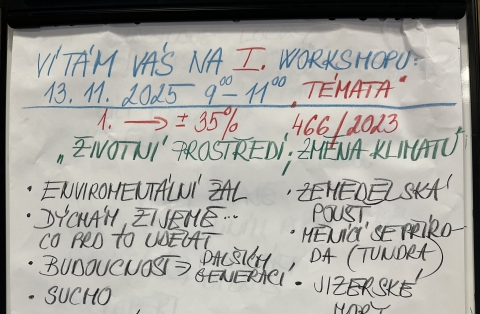 VÍTÁM VÁS NA I. WORKSHOPU:
13. 11. 2025 9⁰⁰ - 11⁰⁰ "TÉMATA"
1. → ± 35% 466/2023
"ŽIVOTNÍ PROSTŘEDÍ, ZMĚNA KLIMATU"
• ENVIROMENTÁLNÍ ŽAL
• DÝCHÁM ŽIJEME...
CO PRO TO UDĚLAT
• BUDOUCNOST => DALŠÍCH
GENERACÍ
• SUCHO
• ZEMĚDĚLSKÁ
POUŠŤ
• MĚNÍCÍ SE PŘÍRO-
DA (TUNDRA)
• JIZERSKÉ
HORY